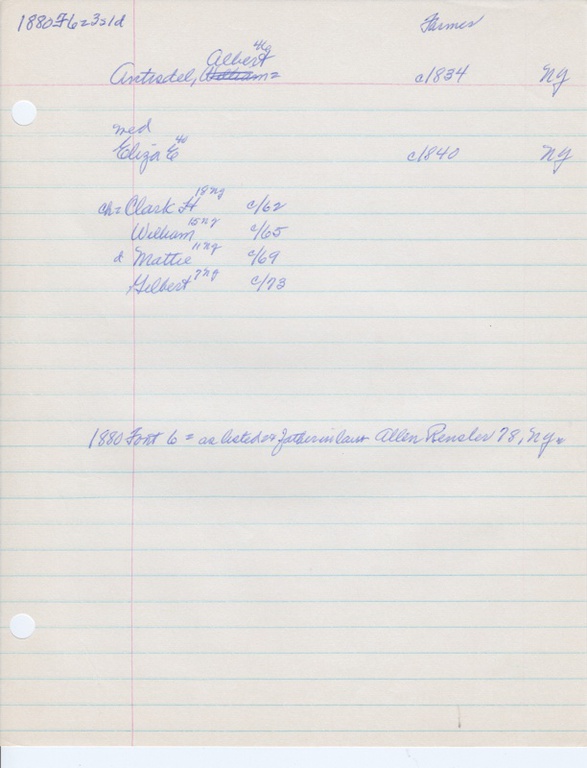 1880 Ft 6=3s1d Farmer
Albert 46
Antisdel, William= c1834 NY
med
Eliza E 40 c1840 NY
ch= Clark H 18 NY c/62
William 15 NY c/65
d Mattie 11 NY c/69
Gilbert 7 NY c/73
1880 Fort 6 = as listed & fatherinlaw Allen Rensler 78, NY.